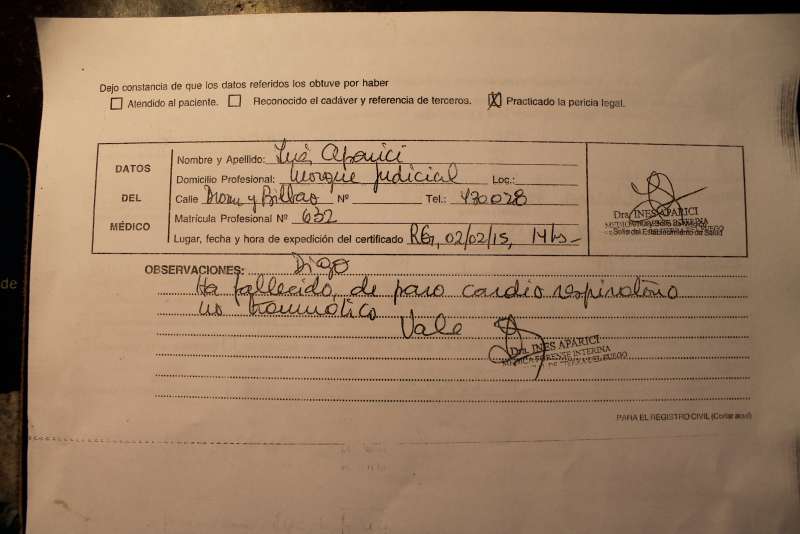 Dejo constancia de que los datos referidos los obtuve por haber
Atendido al paciente. Reconocido el cadáver y referencia de terceros. X Practicado la pericia legal.
DATOS DEL MÉDICO
Nombre y Apellido: Inés Aparici
Domicilio Profesional: Morgue Judicial Loc.:
Calle y Bilbao Nº Tel.: 430028
Matrícula Profesional Nº 632
Lugar, fecha y hora de expedición del certificado RG, 02/02/15, 14hs
Dra. INES APARICI
Sello del Establecimiento de Salud
OBSERVACIONES: Digo
Ha fallecido, de paro cardio respiratorio
no traumático Vale
Dra. INES APARICI
MEDICA FORENSE INTERINA
TIERRA DEL FUEGO
PARA EL REGISTRO CIVIL (Cortar aquí)
de